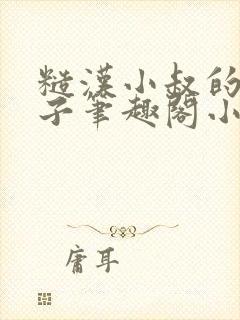 糙漢小叔的
子筆趣閣小
庸耳